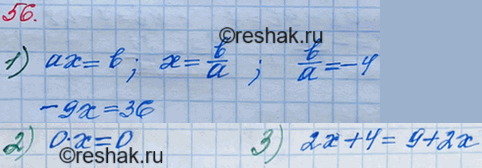 56.
©reshak.ru
1) ax = b ; x = b/a ; b/a = -4
-9x = 36
2) 0·x = 0 3) 2x + 4 = 9 + 2x
©reshak.ru